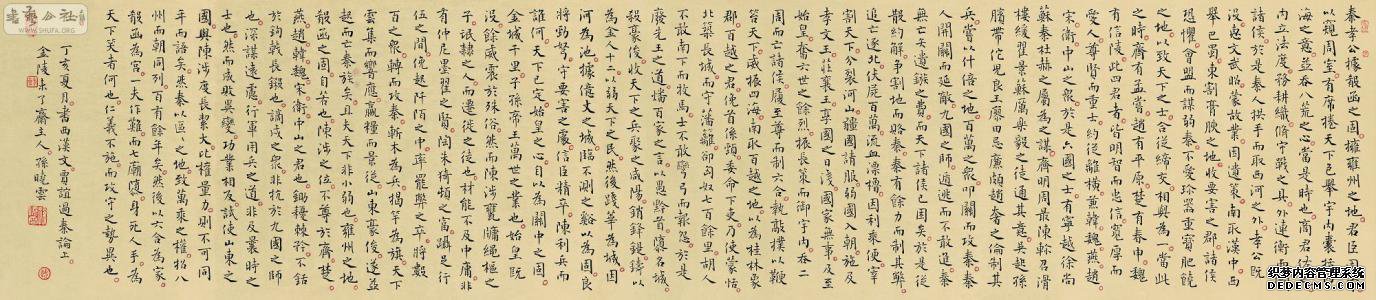 秦孝公據殽函之固擁雍州之地君臣固守
以窺周室有席卷天下包舉宇內囊括四
海之意并吞八荒之心當是時也商君佐之
內立法度務耕織修守戰之具外連衡而鬥
諸侯於是秦人拱手而取西河之外孝公既
沒惠文武昭蒙故業因遺策南取漢中西
舉巴蜀東割膏腴之地收要害之郡諸侯
恐懼會盟而謀弱秦不愛珍器重寶肥饒
之地以致天下之士合從締交相與為一當此
之時齊有孟嘗趙有平原楚有春申魏
有信陵此四君者皆明智而忠信寬厚而
愛人尊賢而重士約從離橫兼韓魏燕趙
宋衛中山之眾於是六國之士有甯越徐尚
蘇秦杜赫之屬為之謀齊明周最陳軫召滑
樓緩翟景蘇厲樂毅之徒通其意吳起孫
臏帶佗兒良王廖田忌廉頗趙奢之倫制其
兵嘗以什倍之地百萬之眾叩關而攻秦秦
人開關而延敵九國之師遁逃而不敢進秦
無亡矢遺鏃之費而天下諸侯已困矣於是從
散約解爭割地而賂秦秦有餘力而制其弊
追亡逐北伏尸百萬流血漂櫓因利乘便宰
割天下分裂河山疆國請服弱國入朝施及
孝文王莊襄王享國之日淺國家無事及至
始皇奮六世之餘烈振長策而御宇內吞二
周而亡諸侯履至尊而制六合執敲朴以鞭
笞天下威振四海南取百越之地以為桂林象
郡百越之君俛首係頸委命下吏乃使蒙恬
北築長城而守藩籬卻匈奴七百餘里胡人
不敢南下而牧馬士不敢彎弓而報怨於是
廢先王之道燔百家之言以愚黔首墮名城
殺豪俊收天下之兵聚之咸陽銷鋒鍉鑄以
為金人十二以弱天下之民然後踐華為城因
河為池據億丈之城臨不測之谿以為固良
將勁弩守要害之處信臣精卒陳利兵而
誰何天下已定始皇之心自以為關中之固
金城千里子孫帝王萬世之業也始皇既
沒餘威震於殊俗然而陳涉甕牖繩樞之
子甿隸之人而遷徙之徒也材能不及中庸非
有仲尼墨翟之賢陶朱猗頓之富躡足行
伍之間俛起阡陌之中率罷弊之卒將數
百之眾轉而攻秦斬木為兵揭竿為旗天下
雲集而響應贏糧而景從山東豪俊遂並
起而亡秦族矣且夫天下非小弱也雍州之地
殽函之固自若也陳涉之位不尊於齊楚
燕趙韓魏宋衛中山之君也鋤耰棘矜不銛
於鉤戟長鎩也謫戍之眾非抗於九國之師
也深謀遠慮行軍用兵之道非及曩時之
士也然而成敗異變功業相反試使山東之
國與陳涉度長絜大比權量力則不可同
年而語矣然秦以區區之地致萬乘之權招八
州而朝同列百有餘年矣然後以六合為家
殽函為宮一夫作難而七廟墮身死人手為
天下笑者何也仁義不施而攻守之勢異也
丁亥夏月書西漢文賈誼過秦論上
金陵未了齋主人孫曉雲
书法公社
织梦内容管理系统